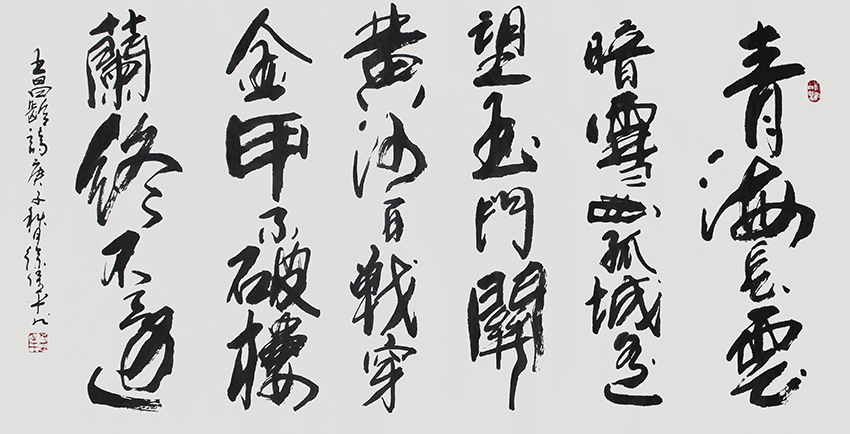 青海長雲
暗雪山孤城遥
望玉門關
黄沙百戰穿
金甲不破樓
蘭終不還
王昌齡詩庚子秋月徐